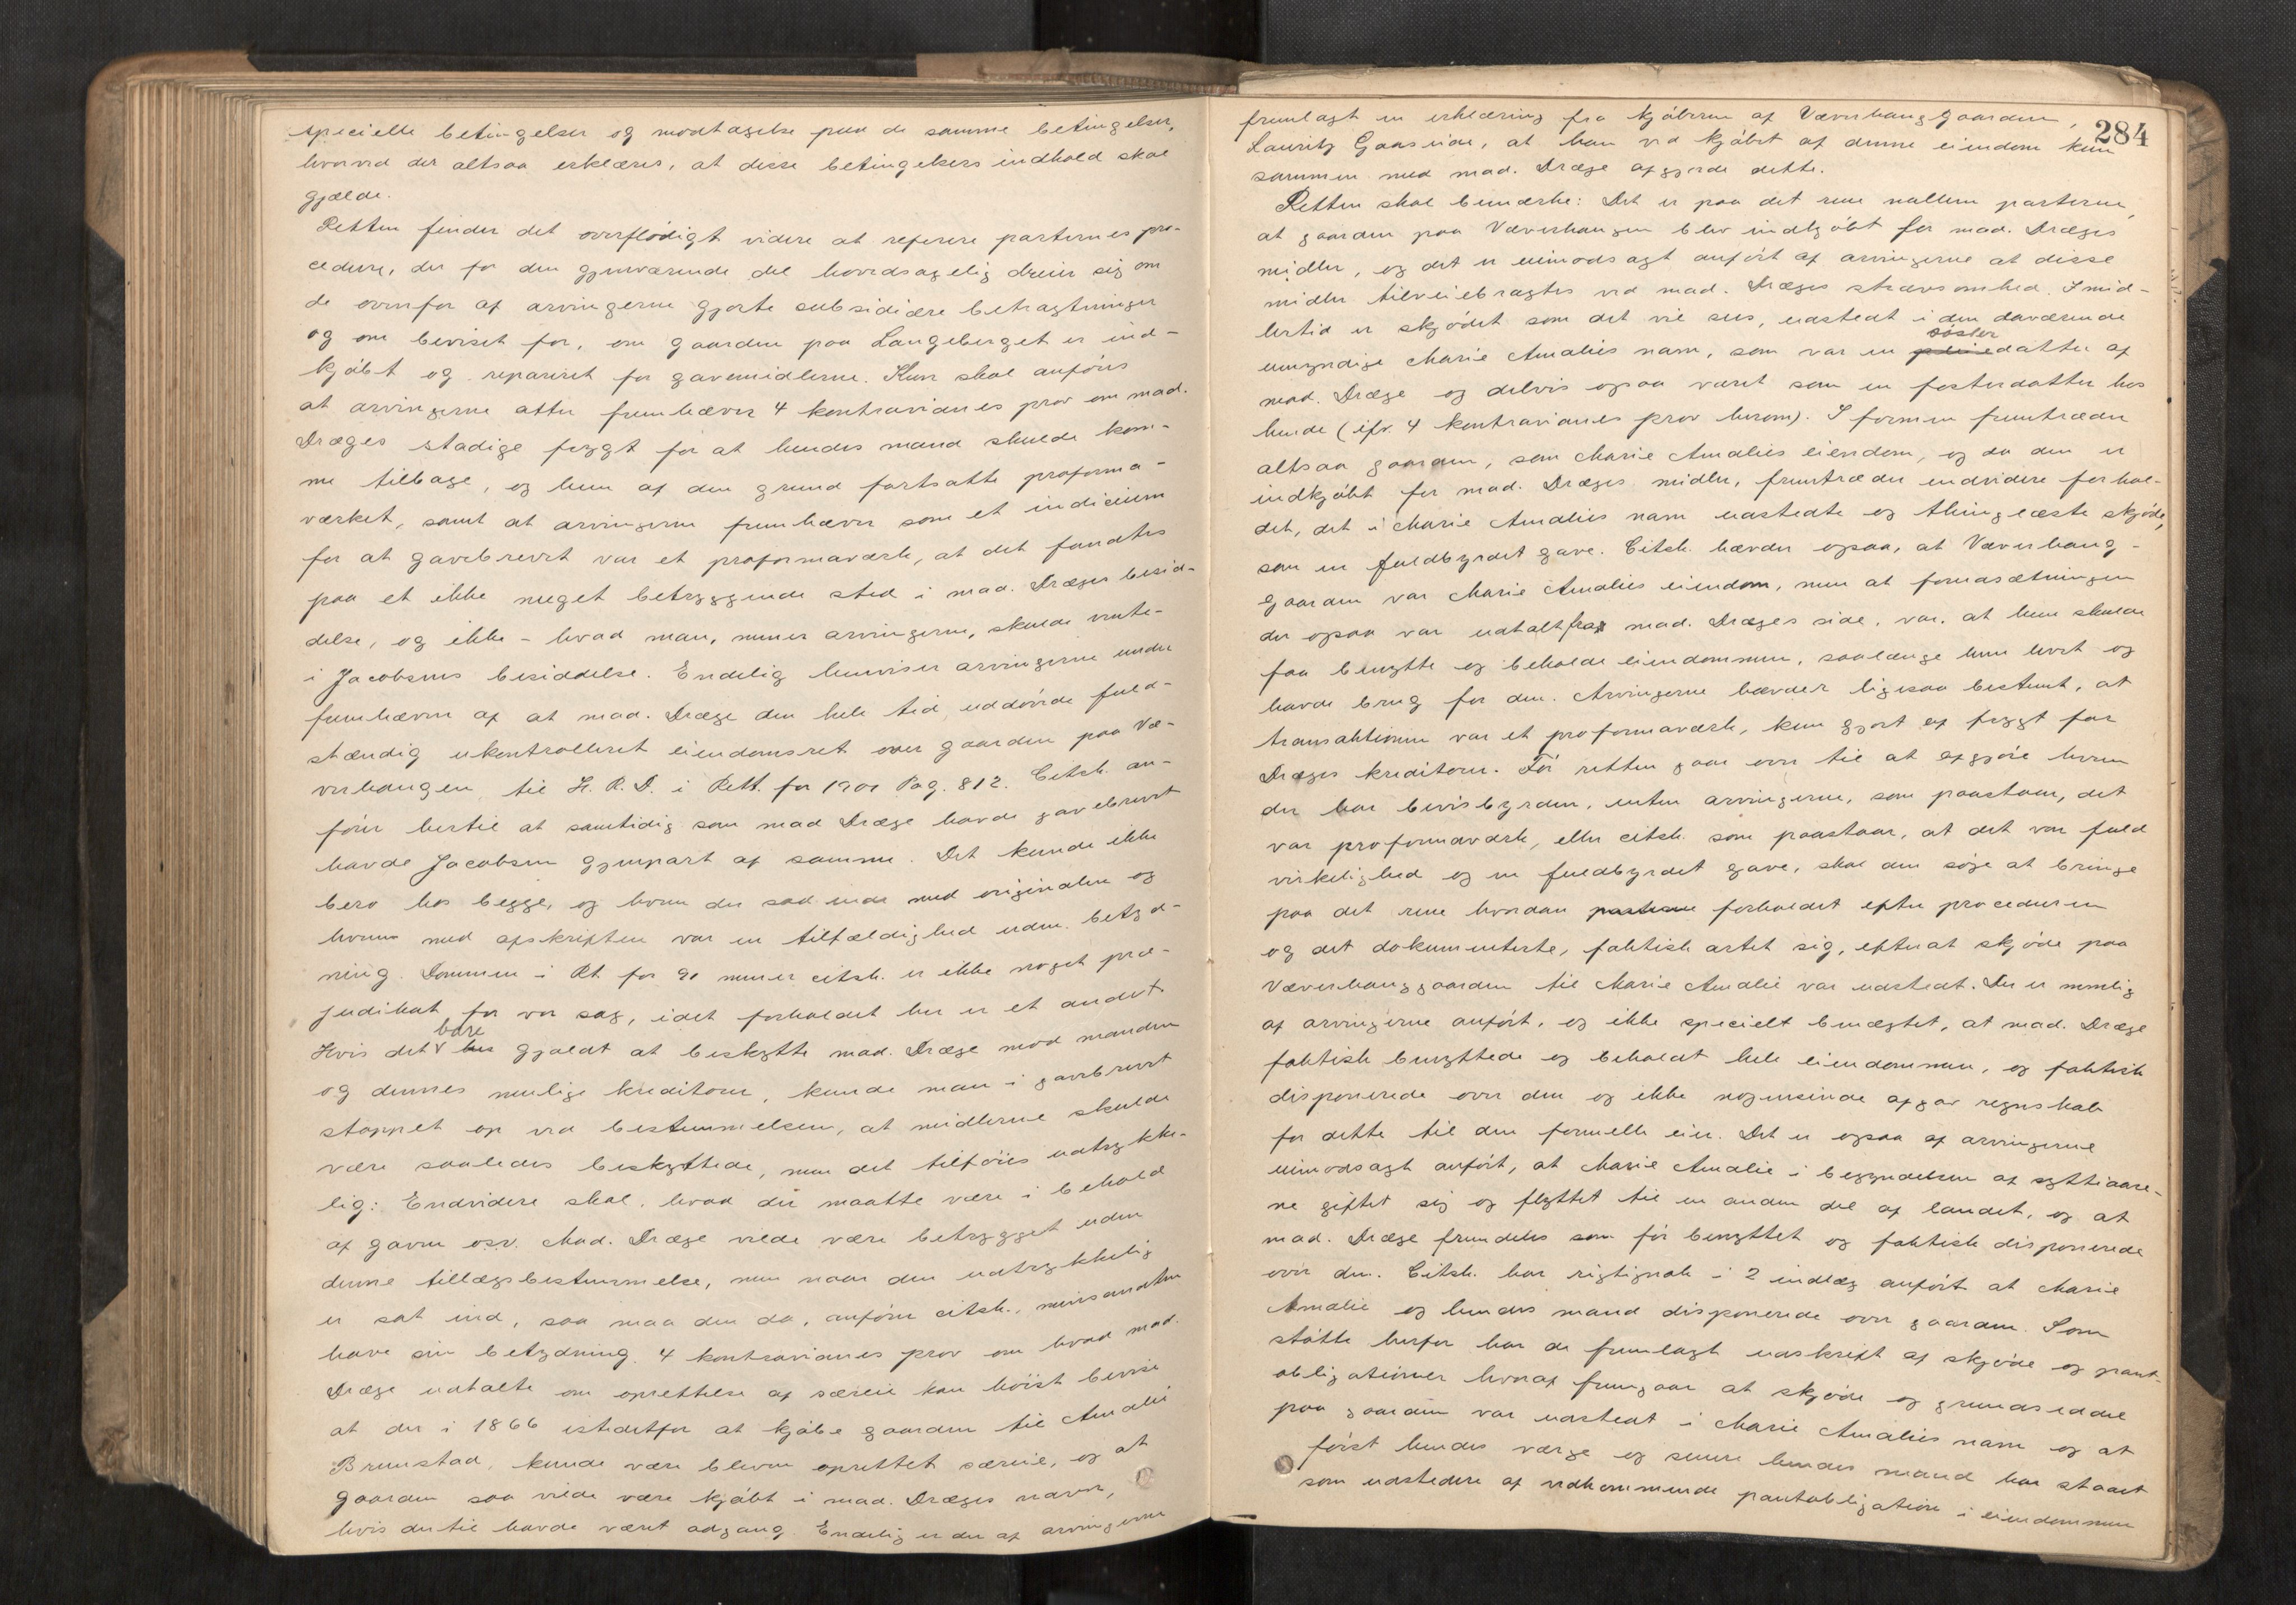 specielle betingelser og modtagelse paa de samme betingelser,
hvorved der altsaa erklæres, at disse betingelsers indhold skal
gjælde.
Retten finder det overflødigt videre at referere parternes pro-
cedure, der for den gjenværende del hovedsagelig dreier sig om
de ovenfor af arvingerne gjorte subsidiære betragtninger
og om beviset for, om gaarden paa Langeberget er ind-
kjøbt og repareret for gavemidlerne. Kun skal anføres
at arvingerne atter fremhæver 4 kontravidnes prov om mad.
Dræges stadige frygt for at hendes mand skulde kom-
me tilbage, og hun af den grund fortsatte proforma-
værket, samt at arvingerne fremhæver som et indicium
for at gavebrevet var et proformaværk, at det fandtes
paa et ikke meget betryggende sted i mad. Dræges besid-
delse, og ikke – hvad man, mener arvingerne, skulde vente –
i Jacobsens besiddelse. Endelig henviser arvingerne under
fremhæven af at mad. Dræge den hele tid uddøvede fuld-
stændig ukontrolleret eiendomsret over gaarden paa Væ-
verhaugen til H. R. D. i Rett. for 1901 Pag. 812. Citsk. an-
fører hertil at samtidig som mad Dræge havde gavebrevet
havde Jacobsen gjenpart af samme. Det kunde ikke
bero hos begge, og hvem der sad inde med originalen og
hvem med afskriften var en tilfældighed uden betyd-
ning. Dommen i Rt. for 91 mener citsk. er ikke noget præ-
judikat for vor sag, idet forholdet her er et andet.
Hvis det bare gjaldt at beskytte mad. Dræge mod manden
og dennes mulige kreditorer, kunde man i gavebrevet
stoppet op ved bestemmelsen, at midlerne skulde
være saaledes beskyttede, men det tilføies udtrykke-
lig: Endvidere skal, hvad der maatte være i behold
af gaven osv. Mad. Dræge vilde være betrygget uden
denne tillægsbestemmelse, men naar den udtrykkelig
er sat ind, saa maa den da, anfører citsk., meinsandten
have sin betydning. 4 kontravidnes prov om hvad mad.
Dræge udtalte om oprettelse af særeie kan høist bevise
at der i 1866 istedetfor at kjøbe gaarden til Amalie
Brunstad, kunde være bleven oprettet særeie, og at
gaarden saa vilde være kjøbt i mad. Dræges navn,
hvis dertil havde været adgang. Endelig er der af arvingerne
284
fremlagt en erklæring fra kjøberen af Væverhauggaarden,
Lauritz Gaaseide, at han ved kjøbet af denne eiendom kun
sammen med mad. Dræge afgjorde dette.
Retten skal bemærke: Det er paa det rene mellem parterne,
at gaarden paa Væverhaugen blev indkjøbt for mad. Dræges
midler, og det er uimodsagt anført af arvingerne at disse
midler tilveiebragtes ved mad. Dræges strævsomhed. Imid-
lertid er skjødet som det vil sees, udstedt i den daværende
umyndige Marie Amalies navn, som var en søsterdatter af
mad. Dræge og delvis ogsaa været som en fosterdatter hos
hende (ifr. 4 kontravidnes prov herom). I formen fremtræder
altsaa gaarden, som Marie Amalies eiendom, og da den er
indkjøbt for mad. Dræges midler, fremtræder endvidere forhol-
det, det i Marie Amalies navn udstedte og thinglæste skjøde,
som en fuldbyrdet gave. Citsk. hævder ogsaa, at Væverhaug-
gaarden var Marie Amalies eiendom, men at forudsætningen
der ogsaa var udtalt fra mad. Dræges side, var, at hun skulde
faa benytte og beholde eiendommen, saalænge hun levet og
havde brug for den. Arvingerne hævder ligesaa bestemt, at
transaktionen var et proformaværk, kun gjort af frygt for
Dræges kreditorer. Før retten gaar over til at afgjøre hvem
der har bevisbyrden, enten arvingerne, som paastaar, det
var proformaværk, eller citsk. som paastaar, at det var fuld
virkelighed og en fuldbyrdet gave, skal den søge at bringe
paa det rene hvordan forholdet efter proceduren
og det dokumenterte, faktisk artet sig, efterat skjøde paa
Væverhauggaarden til Marie Amalie var udstedt. Der er nemlig
af arvingerne anført, og ikke specielt benægtet, at mad. Dræge
faktisk benyttede og beholdt hele eiendommen, og faktisk
disponerede over den og ikke nogensinde afgav regnskab
for dette til den formelle eier. Det er ogsaa af arvingerne
uimodsagt anført, at Marie Amalie i begyndelsen af syttiaare-
ne giftet sig og flyttet til en anden del af landet, og at
mad. Dræge fremdeles som før benyttet og faktisk disponerede
over den. Citsk. har rigtignok i 2 indlæg anført at Marie
Amalie og hendes mand disponerede over gaarden. Som
støtte herfor har de fremlagt udskrift af skjøde og pant-
obligationer hvoraf fremgaar at skjøde og grundseddel
paa gaarden var udstedt i Marie Amalies navn og at
først hendes værge og senere hendes mand har staaet
som udstedere af vedkommende pantobligation i eiendommen